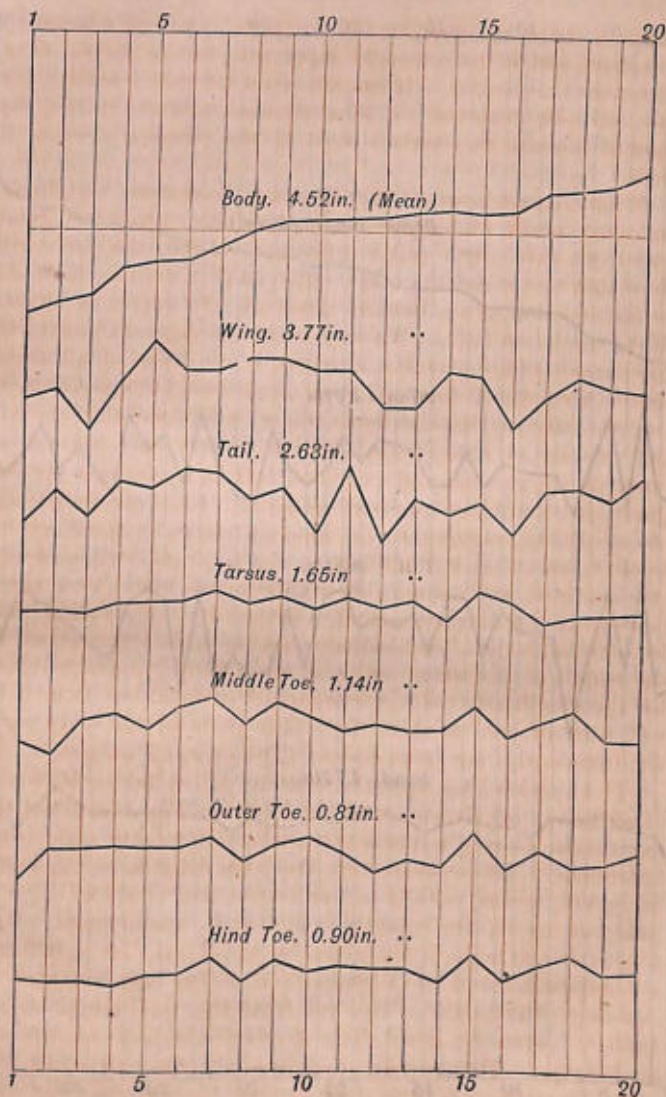 1 5 10 15 20
Body. 4.52in. (Mean)
Wing. 3.77in. ..
Tail. 2.63in. ..
Tarsus. 1.65in ..
Middle Toe. 1.14in ..
Outer Toe. 0.81in. ..
Hind Toe. 0.90in. ..
1 5 10 15 20